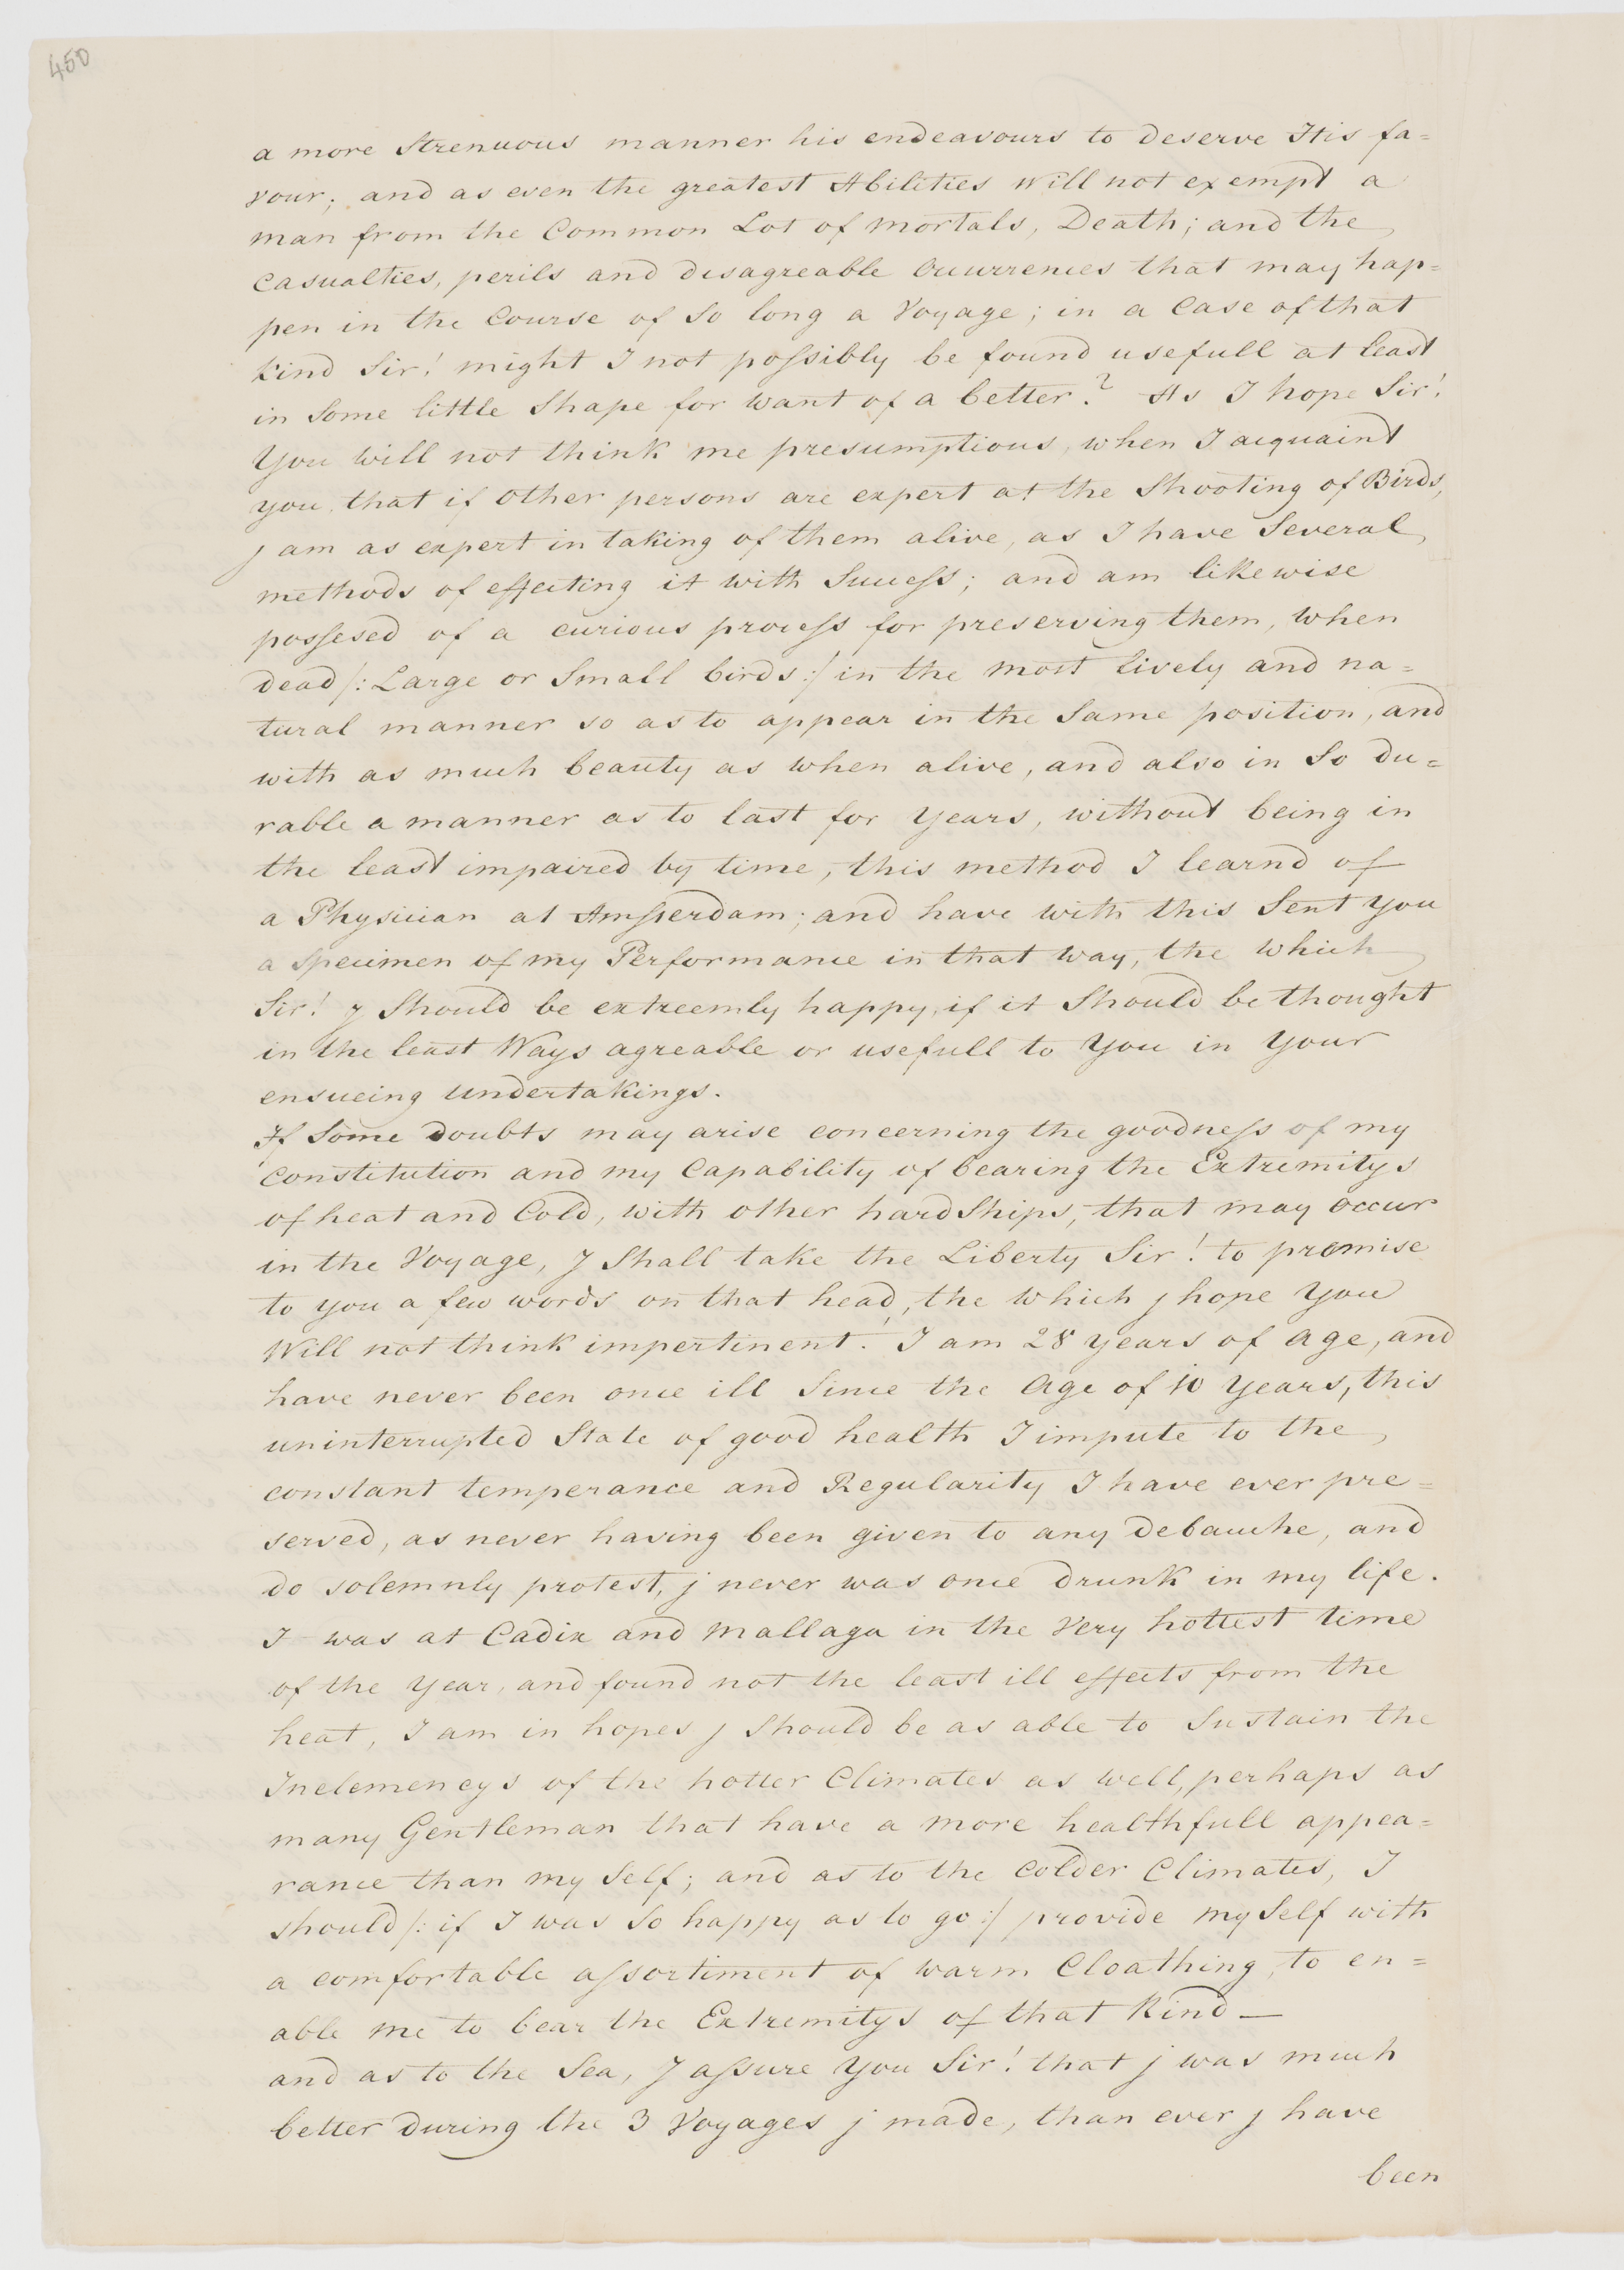 450
a more Strenuous manner his endeavours to deserve His fa=
vour; and as even the greatest Abilities Will not exempt a
man from the Common Lot of mortals, Death; and the
Casualties, perils and disagreable Occurrences that may hap=
pen in the Course of So long a Voyage; in a Case of that
kind Sir! might I not possibly be found usefull at least
in Some little Shape for want of a better? As I hope Sir!
You will not think me presumptious, when I acquaint
you that if other persons are expert at the Shooting of Birds,
j am as expert in taking of them alive, as I have Several
methods of effecting it with Success; and am likewise
possesed of a curious process for preserving them, when
dead /: Large or Small birds :/ in the most lively and na=
tural manner so as to appear in the Same position, and
with as much beauty as when alive, and also in So du=
rable a manner as to last for Years, without being in
the least impaired by time, this method I learnd of
a Physician at Amsterdam; and have with this Sent you
a Specimen of my Performance in that way, the which
Sir! j Should be extreemly happy, if it Should be thought
in the least Ways agreable or usefull to You in Your
ensueing undertakings.
If Some Doubts may arise concerning the goodness of my
constitution and my Capability of bearing the Extremitys
of heat and Cold, with other hardShips, that may occur
in the Voyage, J Shall take the Liberty Sir! to premise
to you a few words on that head, the which j hope You
Will not think impertinent. I am 28 years of age, and
have never been once ill Since the Age of 10 Years, this
uninterrupted State of good health I impute to the
constant temperance and Regularity I have ever pre=
served, as never having been given to any Debauche, and
do solemnly protest, j never was once drunk in my life.
I was at Cadix and Mallaga in the Very hottest time
of the Year, and found not the least ill effects from the
heat, I am in hopes j Should be as able to Sustain the
Inclemencys of the hotter Climates as well, perhaps as
many Gentleman that have a more healthfull appea=
rance than my Self; and as to the Colder Climates, I
should /: if I was So happy as to go :/ provide my Self with
a comfortable assortiment of warm Cloathing, to en=
able me to bear the Extremitys of that Kind —
and as to the Sea, J assure You Sir! that j was much
better during the 3 Voyages j made, than ever j have
been